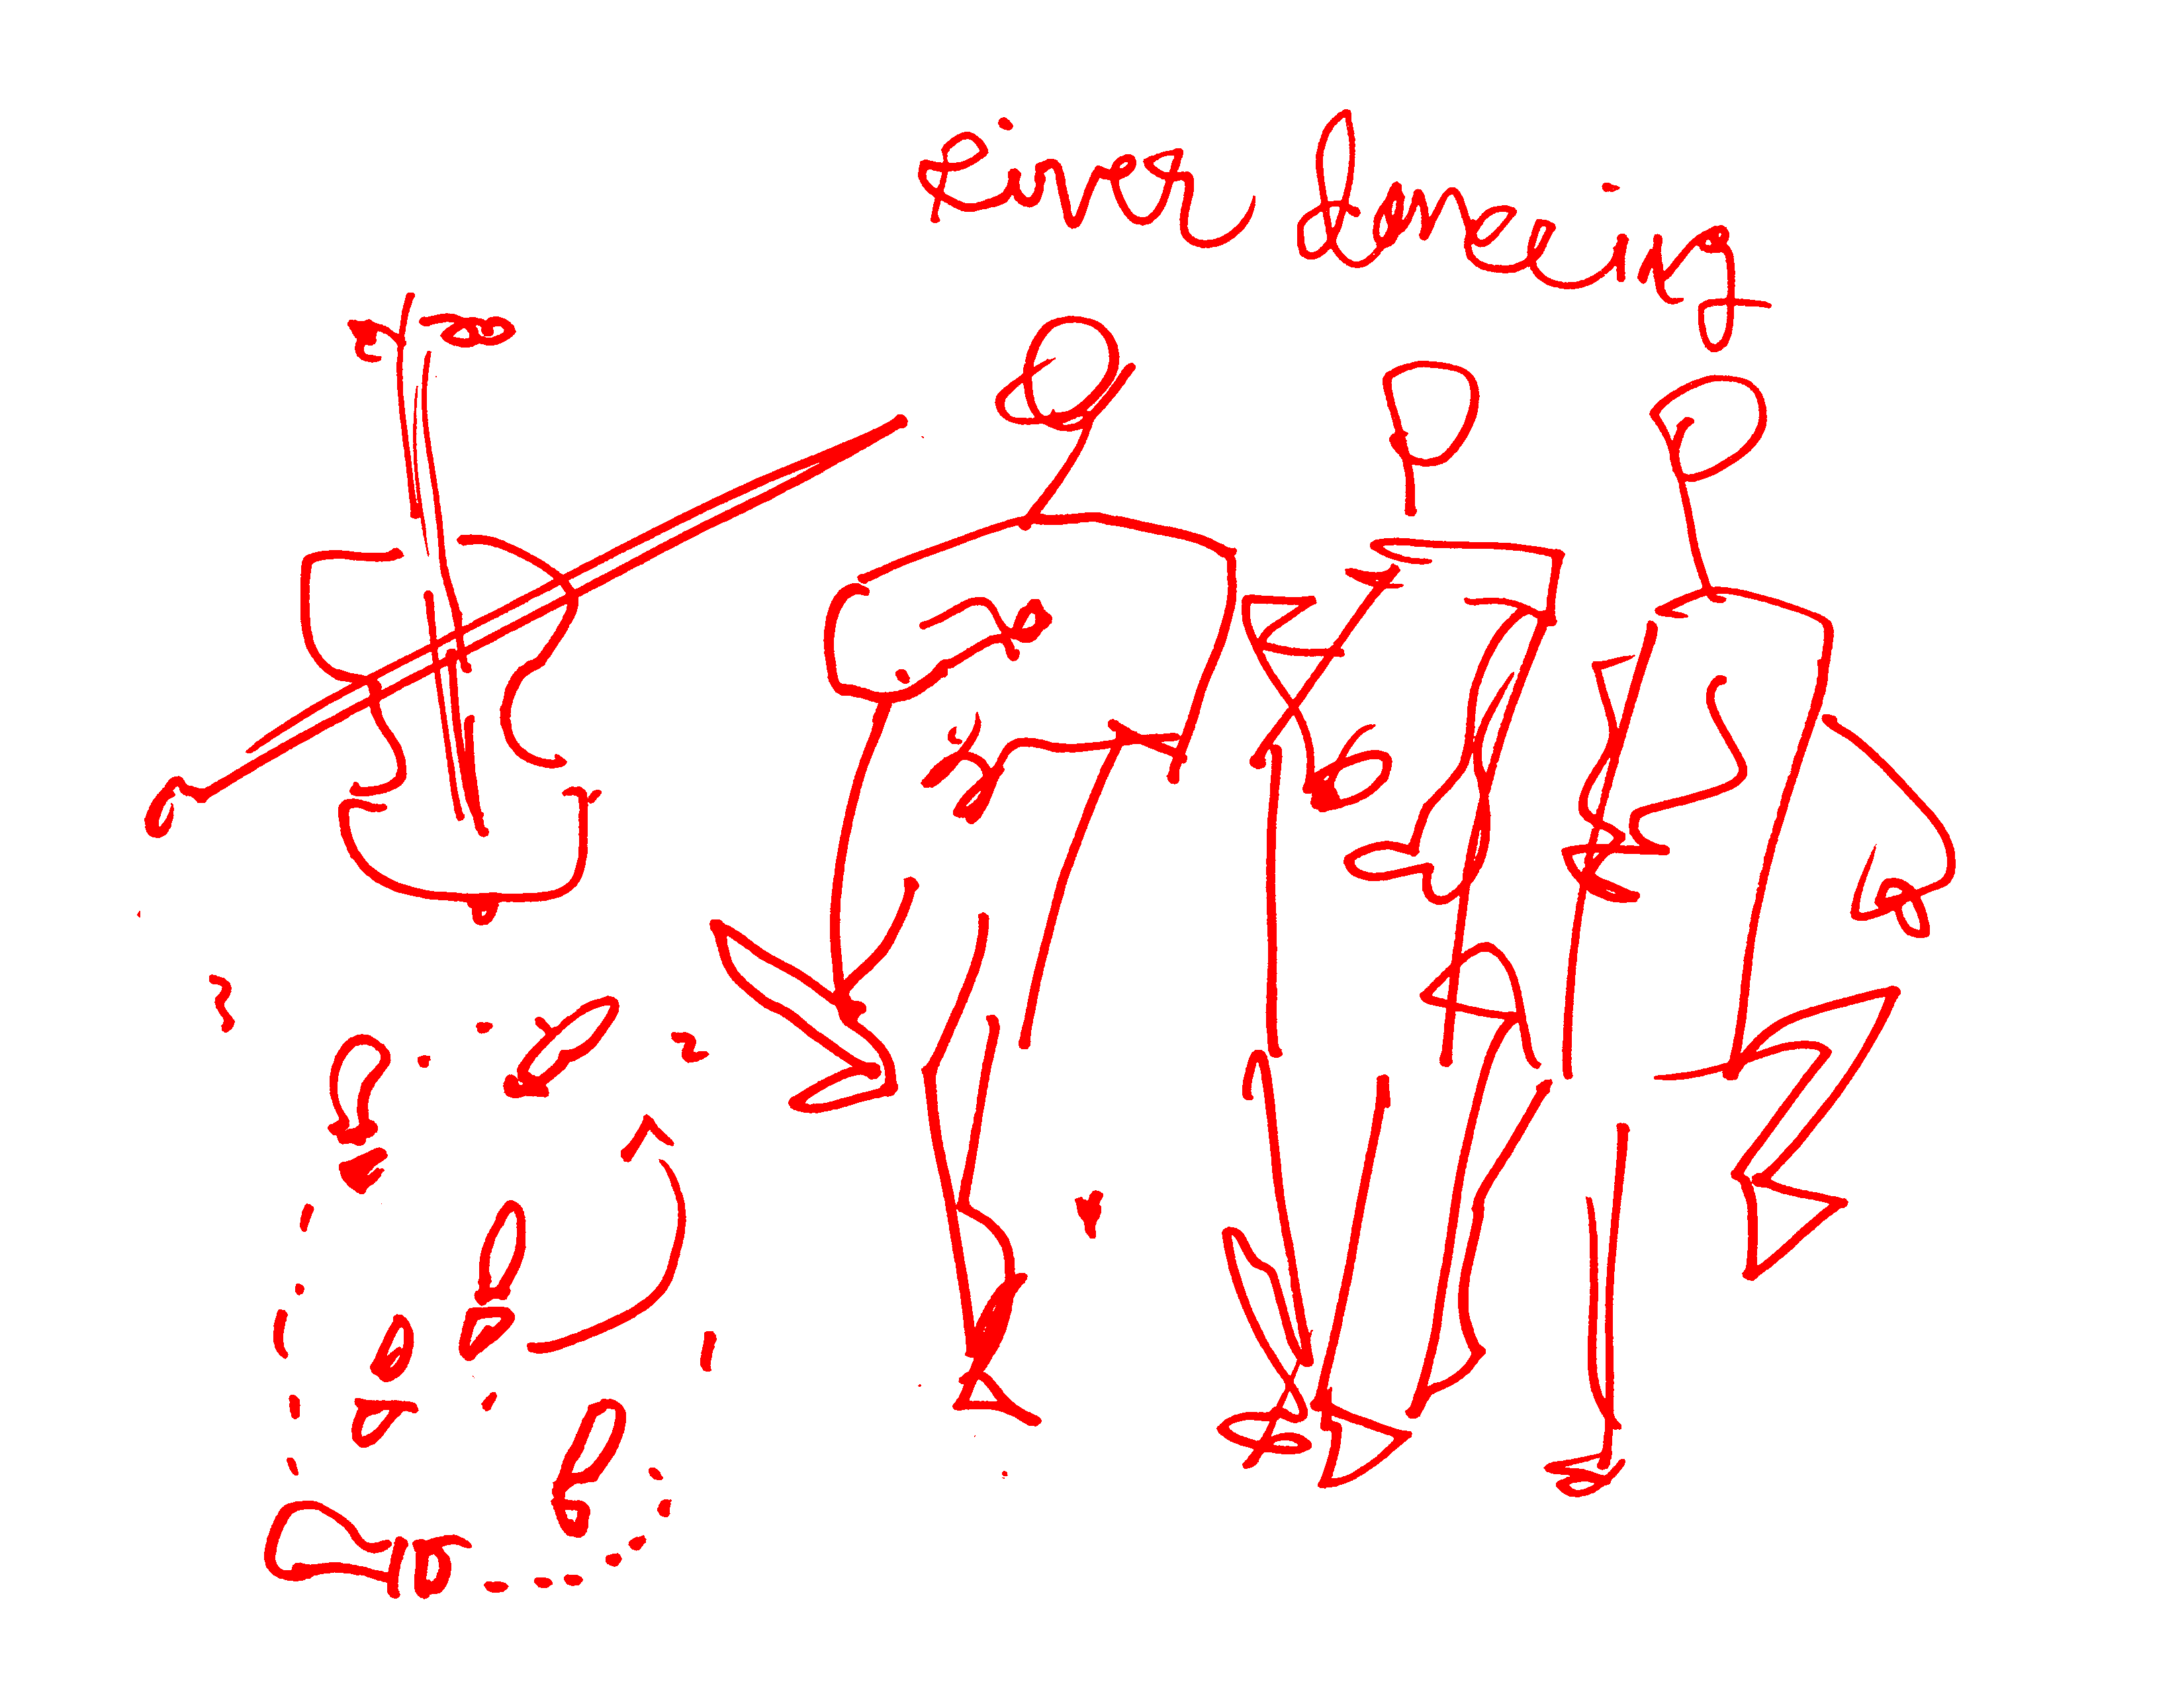 River dancing